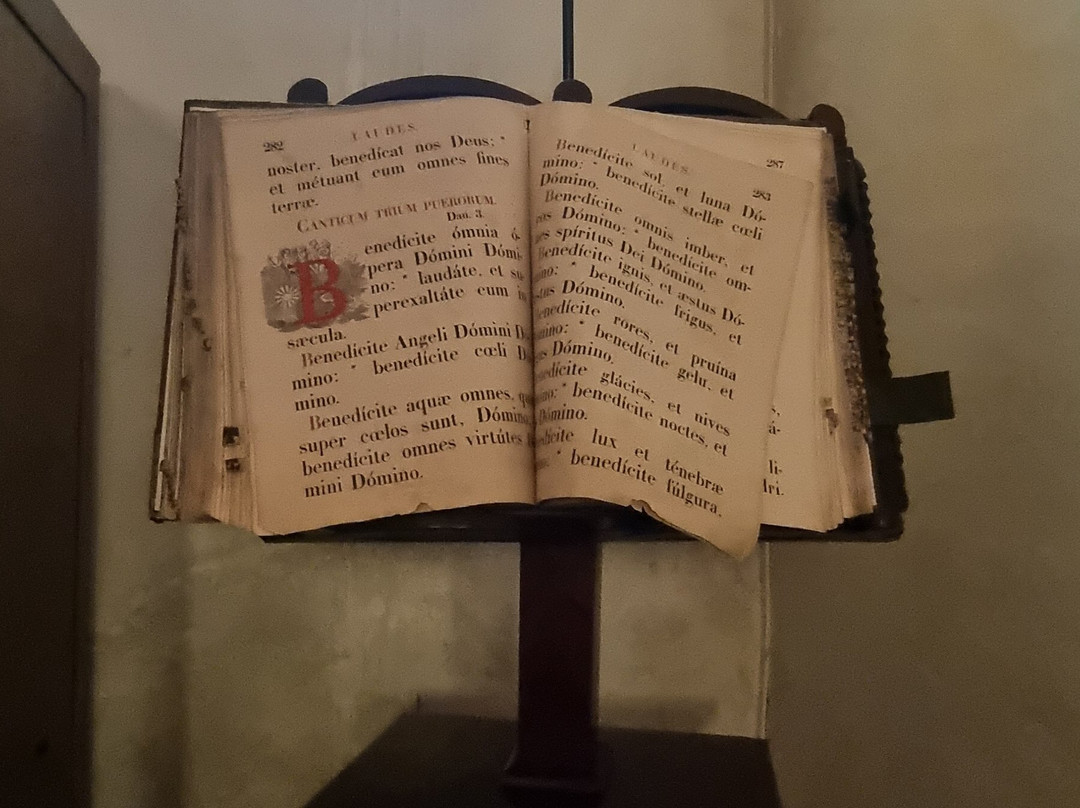 282
LAUDES.
noster, benedícat nos Deus: *
et métuant eum omnes fines
terræ.
CANTICUM TRIUM PUERORUM.
Dan. 3.
Benedícite ómnia ó-
pera Dómini Dómi-
no: * laudáte, et
perexaltáte eum in
sæcula.
Benedícite Angeli Dómini
mino: * benedícite cœli
mino.
Benedícite aquæ omnes,
super cœlos sunt, Dómino
benedícite omnes virtútes
mini Dómino.
LAUDES.
287
283
Benedícite sol, et luna Dó-
mino: * benedícite stellæ cœli
Dómino.
Benedícite omnis imber, et
ros Dómino: * benedícite om-
nes spíritus Dei Dómino.
Benedícite ignis, et æstus Dó-
mino: * benedícite frigus, et
æstus Dómino.
Benedícite rores, et pruína
mino: * benedícite gelu, et
Dómino.
glácies, et nives
* benedícite noctes, et
Dómino.
lux et ténebræ
* benedícite fúlgura,